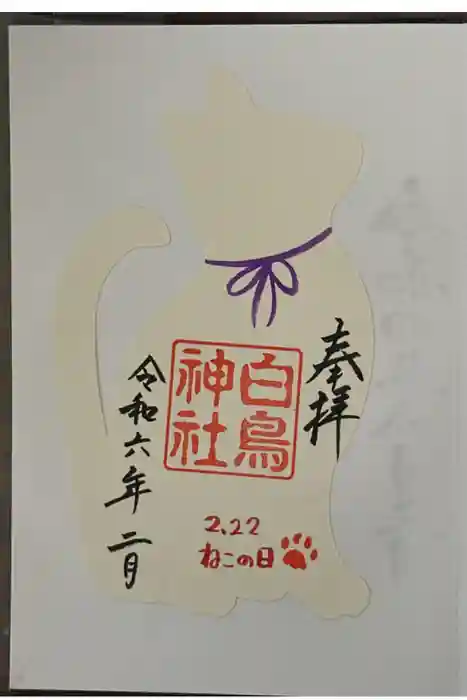 奉拝
白鳥
神社
令和六年 二月
2.22
ねこの日